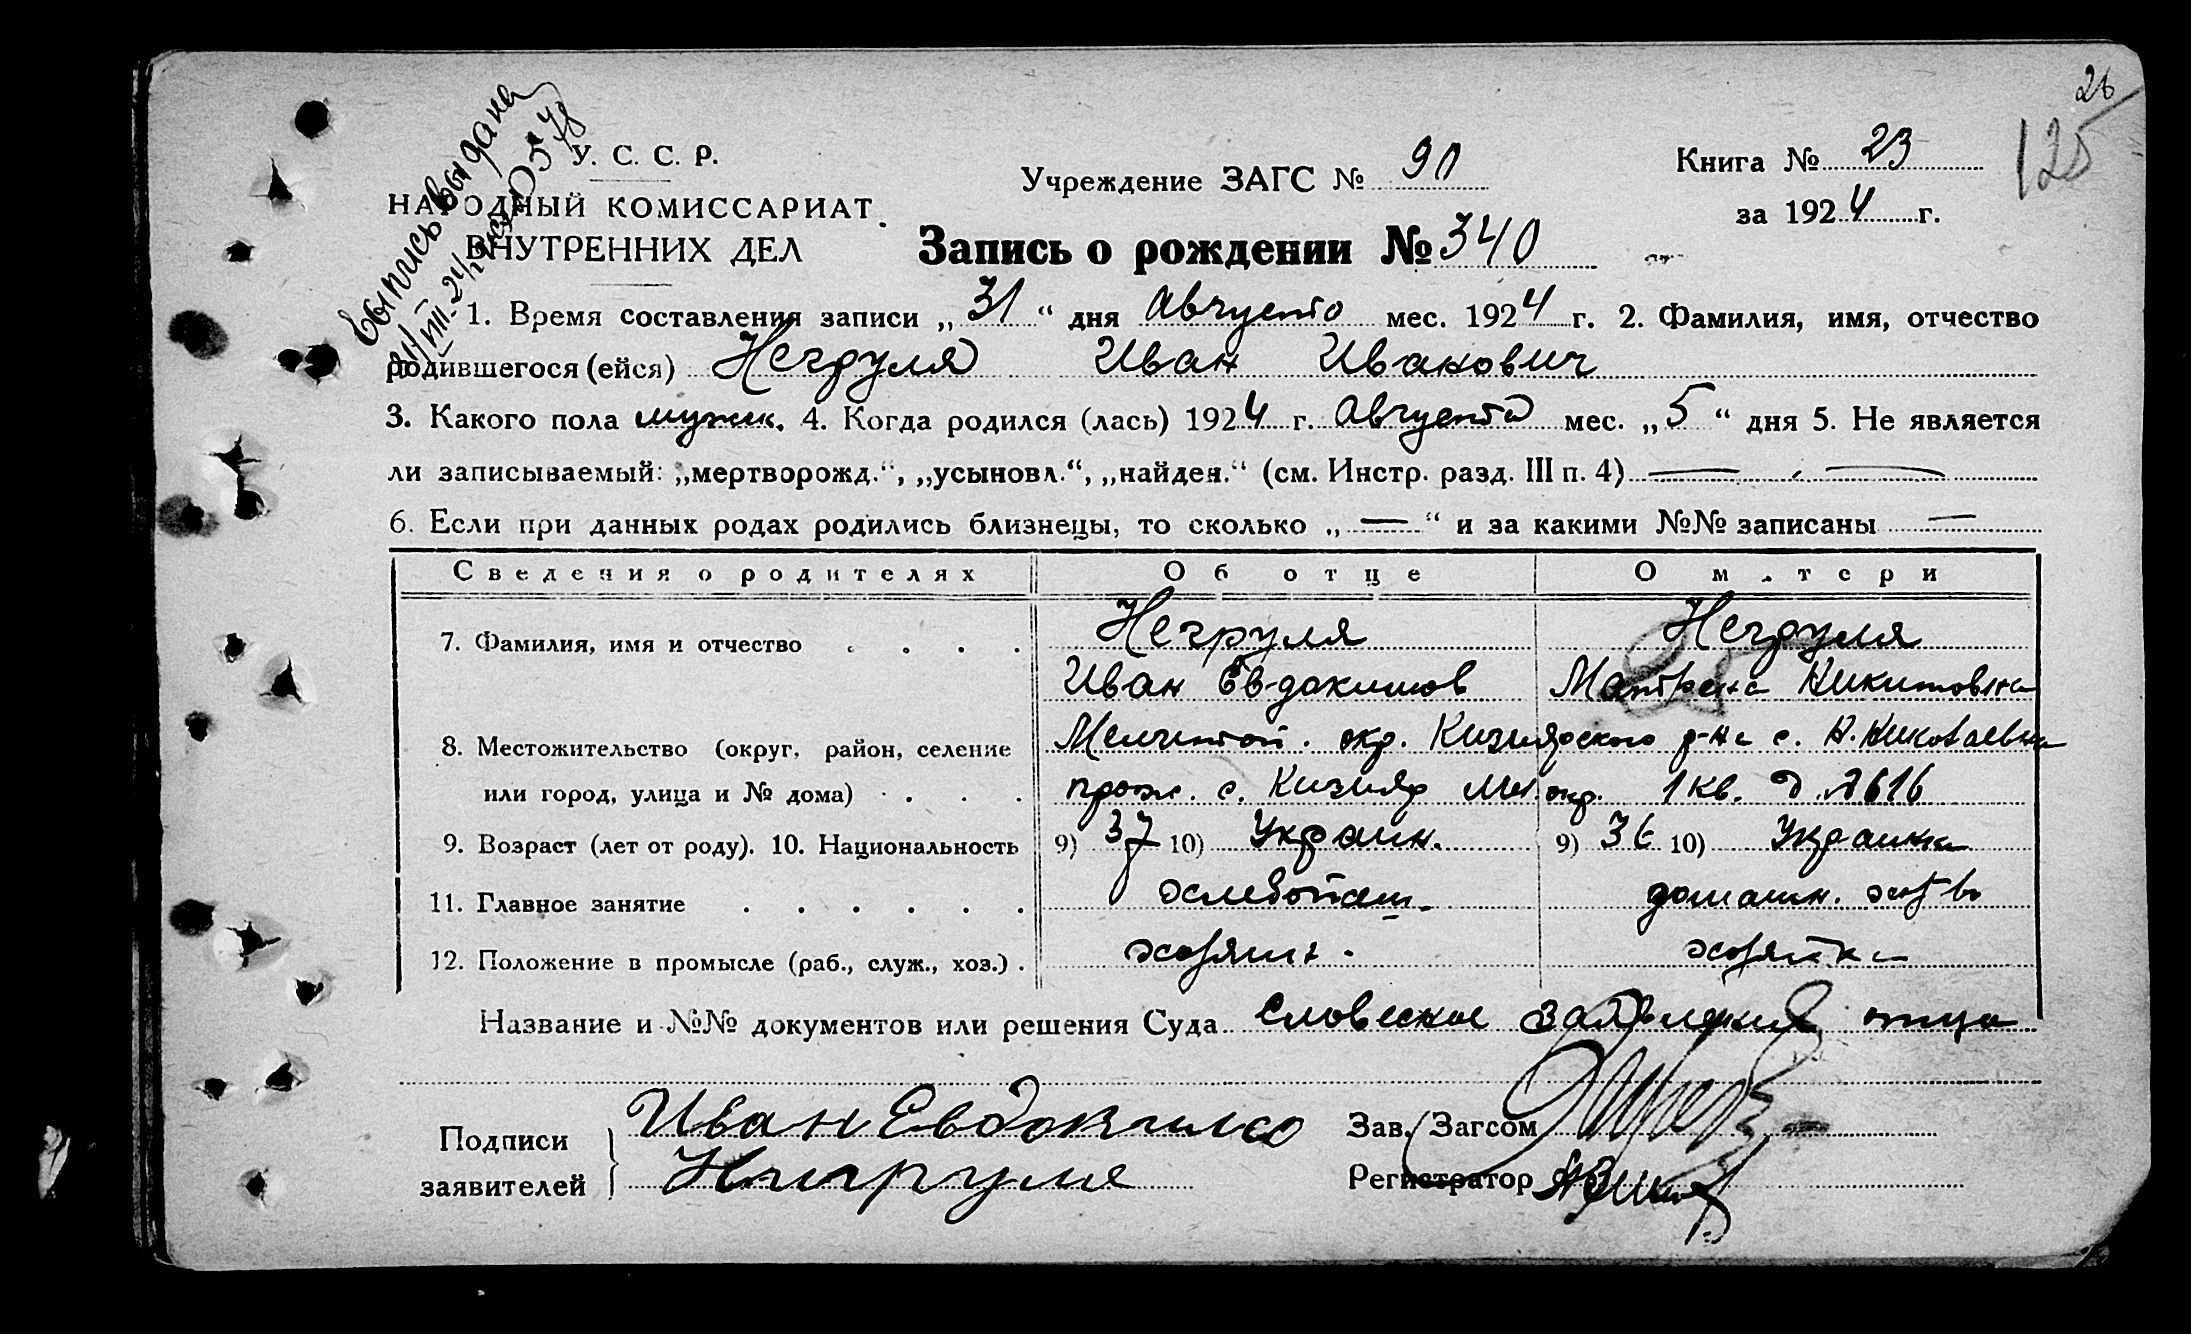 26
125
Выпись выдана
У. С. С. Р.
НАРОДНЫЙ КОМИССАРИАТ
ВНУТРЕННИХ ДЕЛ
Учреждение ЗАГС № 90
Книга № 23
за 1924 г.
Запись о рождении № 340
1. Время составления записи „31“ дня Августа мес. 1924 г. 2. Фамилия, имя, отчество
родившегося (ейся) Негруля Иван Иванович
3. Какого пола мужск. 4. Когда родился (лась) 1924 г. Августа мес. „5“ дня 5. Не является
ли записываемый: „мертворожд.“, „усыновл.“, „найден.“ (см. Инстр. разд. III п. 4) —
6. Если при данных родах родились близнецы, то сколько „—“ и за какими №№ записаны —
Сведения о родителях Об отце О матери
7. Фамилия, имя и отчество Негруля Негруля
Иван Евдокимов Матрена Никитовна
8. Местожительство (округ, район, селение Мелитоп. окр. Кизиярского р-на с. Н. Николаевка
или город, улица и № дома) прож. с. Кизияр Мел. окр. 1 кв. д.
9. Возраст (лет от роду). 10. Национальность 9) 37 10) Украин. 9) 36 10) Украинка
11. Главное занятие хлебопаш. домашн. хоз-во
12. Положение в промысле (раб., служ., хоз.) хозяин. хозяйка
Название и №№ документов или решения Суда Словесное заявление отца
Подписи
заявителей
Иван Евдокимо
Нигруля
Зав. Загсом
Регистратор